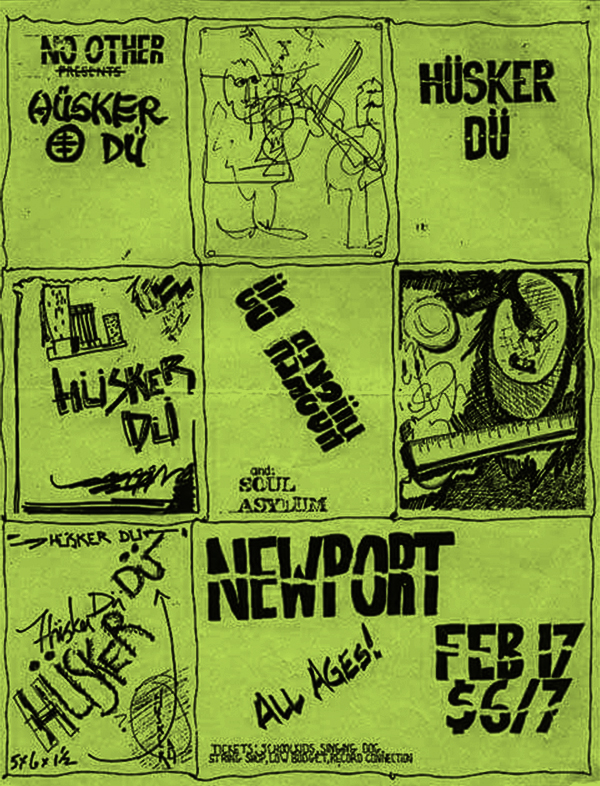 NO OTHER
PRESENTS
HÜSKER
DÜ
HÜSKER
DÜ
HÜSKER
DÜ
HÜSKER
DÜ
and:
SOUL
ASYLUM
HÜSKER DÜ
DÜ
Hüsker Dü
HÜSKER
5x6x1½
NEWPORT
ALL AGES!
FEB 17
$6/7
TICKETS: SCHOOLKIDS, SINGING DOG,
STRING SHOP, LOW BUDGET, RECORD CONNECTION